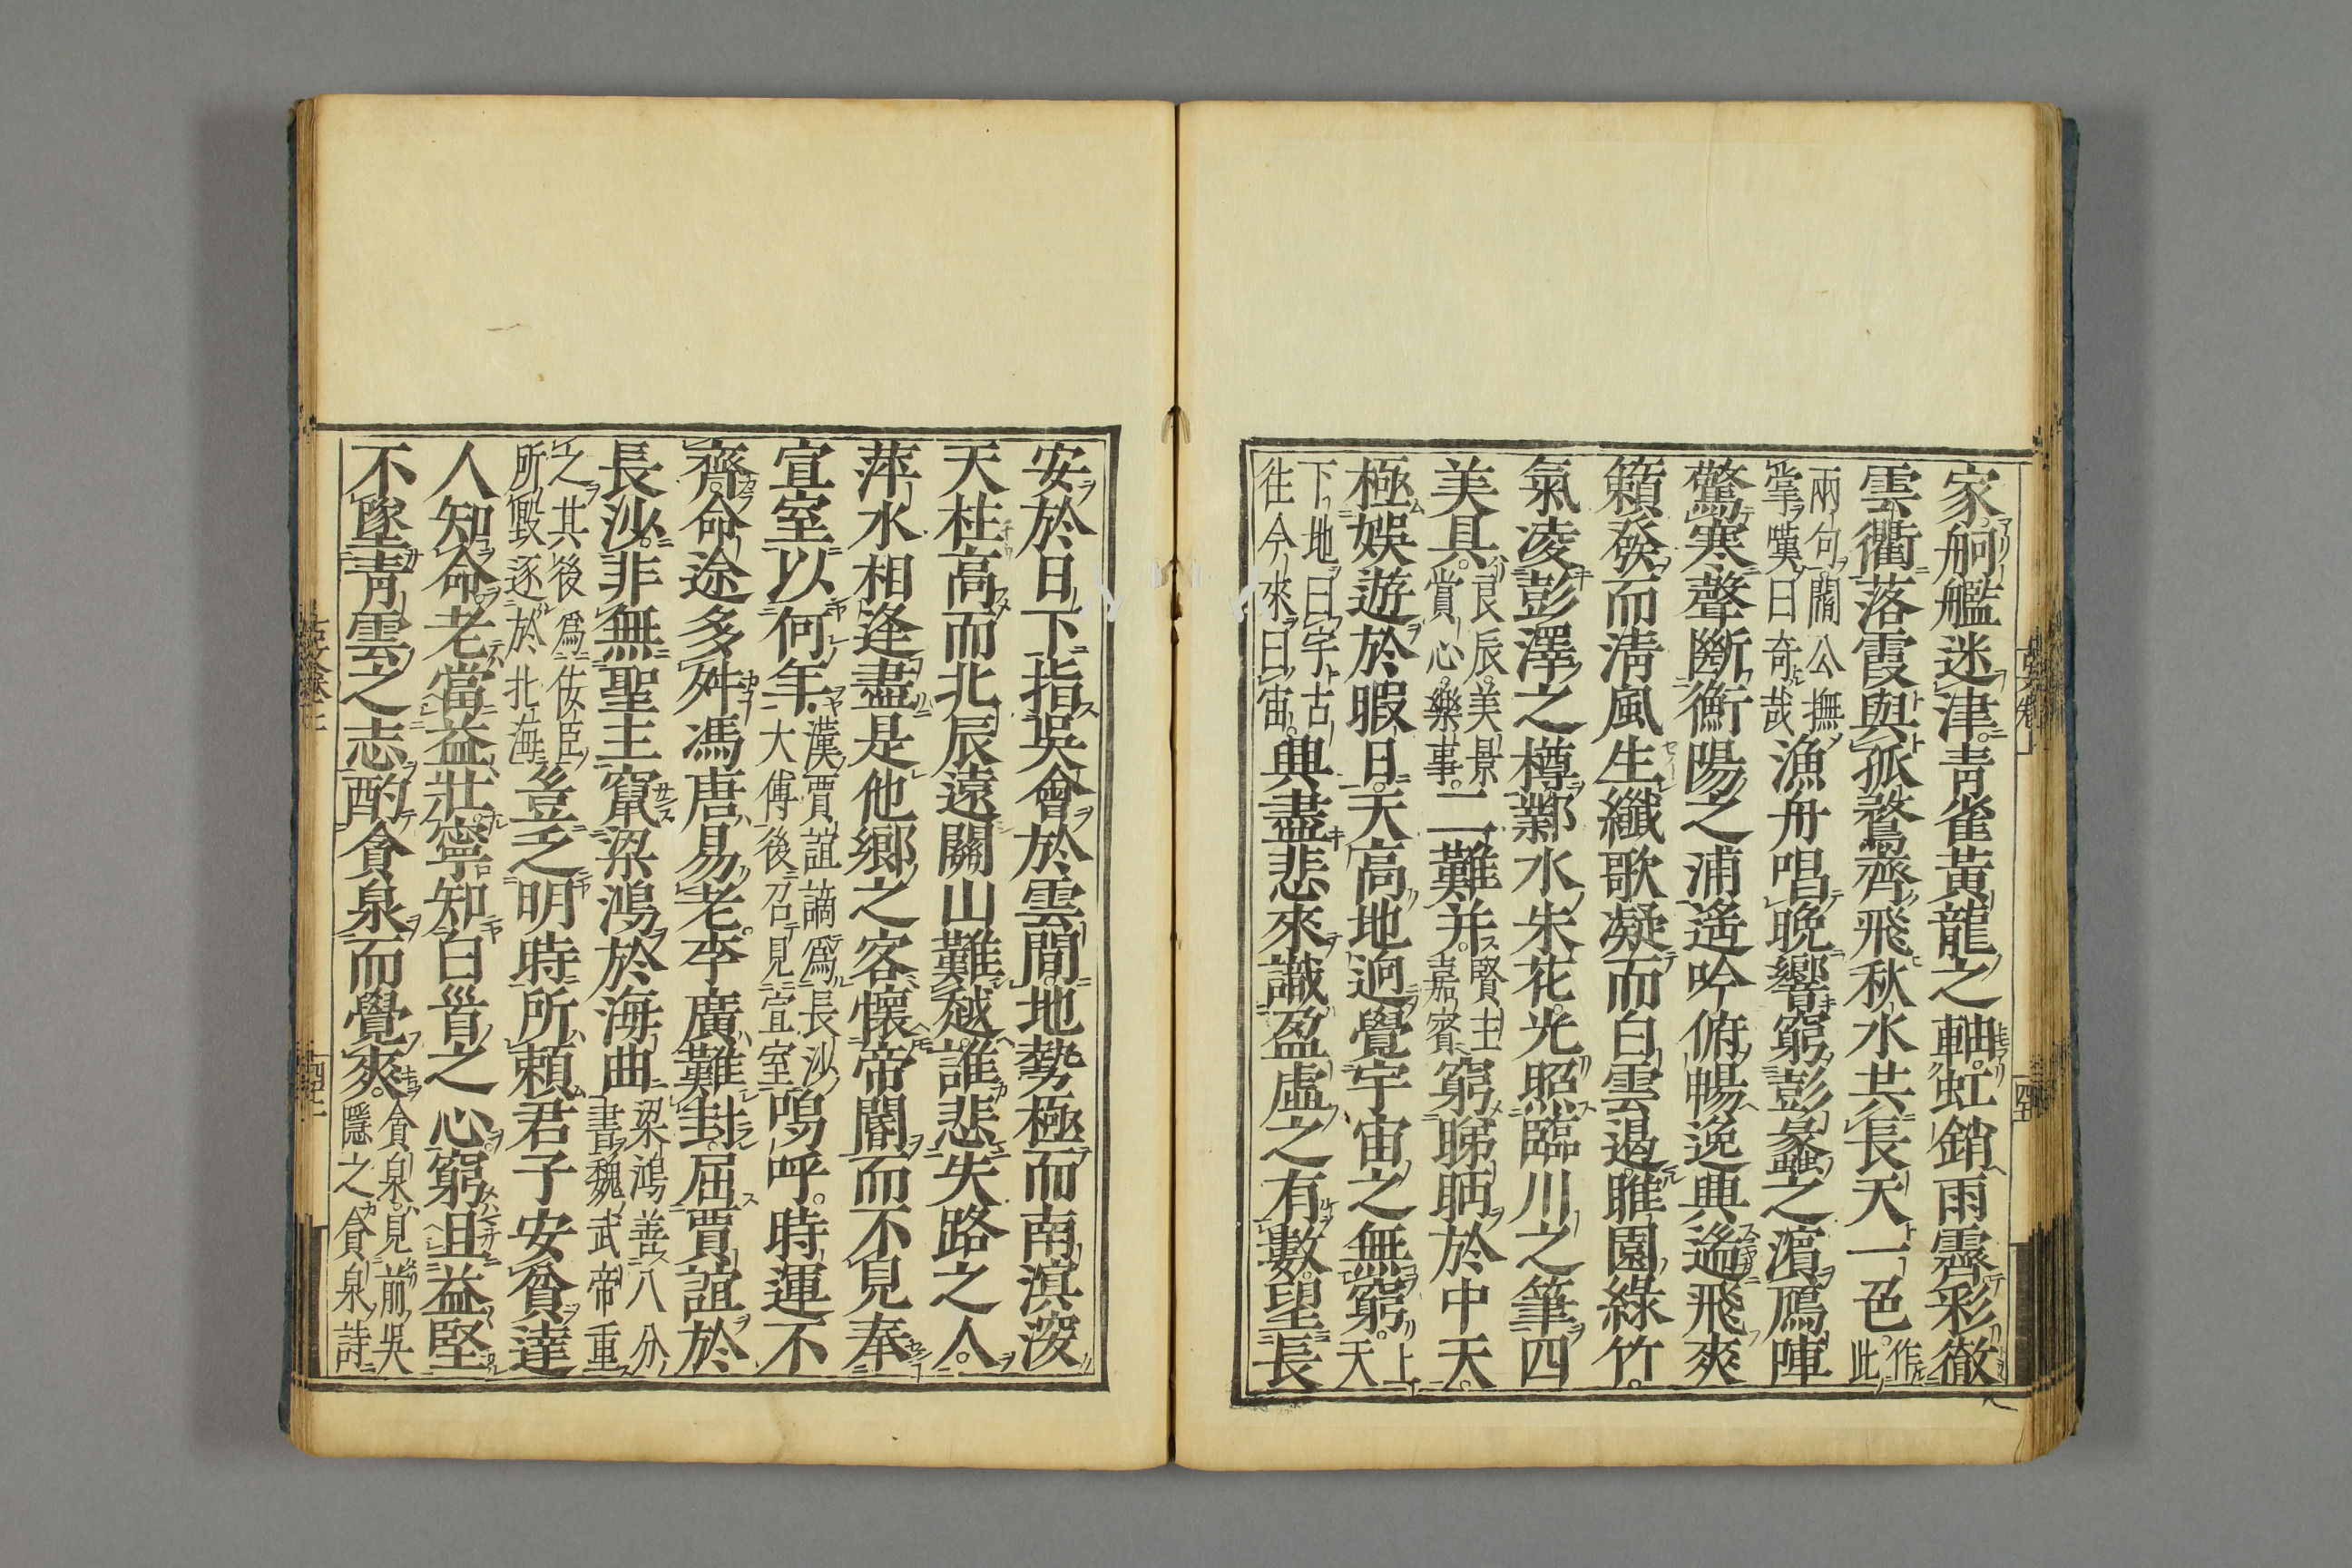 家舸艦迷津。青雀黃龍之軸。虹銷雨霽彩徹
雲衢落霞與孤鶩齊飛秋水共長天一色。作此
兩句。閻公撫掌嘆曰奇哉漁舟唱晚響窮彭蠡之濵鴈陣
驚寒聲斷衡陽之浦遙吟俯暢逸興遄飛爽
籟發而淸風生纖歌凝而白雲遏。睢園綠竹。
氣凌彭澤之樽鄴水朱花光照臨川之筆四
美具。良辰。美景賞心。樂事。二難并。賢主嘉賓窮睇眄於中天。
極娛遊於暇日。天高地逈覺宇宙之無窮。上天
下地曰宇古往今來曰宙。興盡悲來識盈虛之有數。望長
安於日下指吳會於雲間。地勢極而南溟深
天柱高而北辰遠關山難越。誰悲失路之人。
萍水相逢盡是他鄉之客懷帝閽而不見奉
宣室以何年。漢賈誼謫爲長沙大傅後召見宣室嗚呼。時運不
齊。命途多舛馮唐易老。李廣難封。屈賈誼於
長沙。非無聖主竄梁鴻於海曲梁鴻善八分書魏武帝重
之其後爲佞臣所毀逐於北海豈乏明時所賴君子安貧達
人知命。老當益壯。寧知白首之心。窮且益堅
不墜靑雲之志酌貪泉而覺爽。貪泉。見前吳隱之貪泉詩